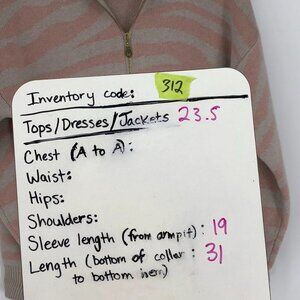 Inventory code: 312
Tops/Dresses/Jackets 23.5
Chest (A to A):
Waist:
Hips:
Shoulders:
Sleeve length (from armpit): 19
Length (bottom of collar : 31
to bottom hem)